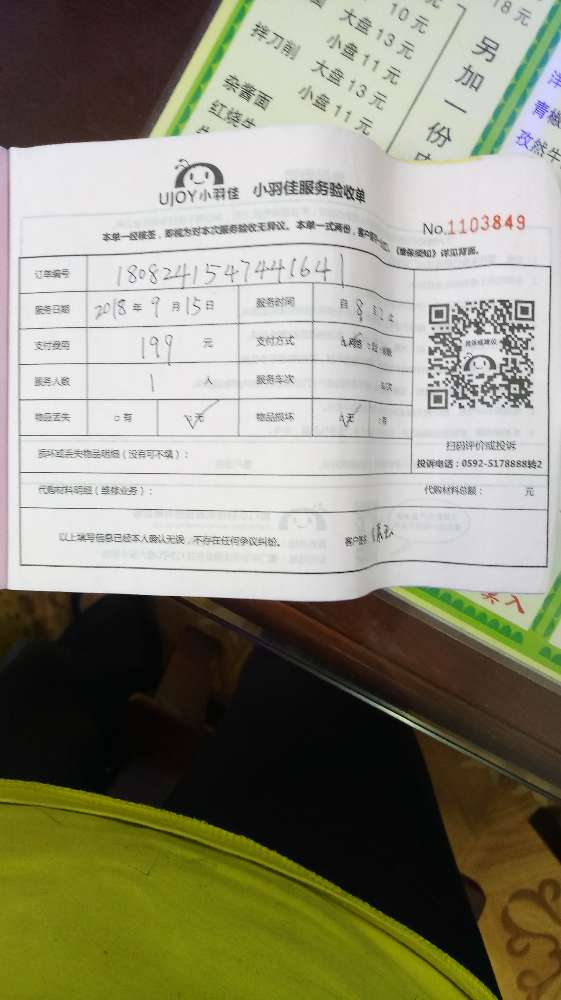 18元
10元
大盘13元
拌刀削 小盘11元
大盘13元
杂酱面 小盘11元
红烧牛
另加一份
青椒
孜然牛
UJOY小羽佳 小羽佳服务验收单
No.1103849
本单一经核签，即视为对本次服务验收无异议。本单一式两份，客户
《维保须知》详见背面。
订单编号 1808241547441641
服务日期 2018年9月15日 服务时间 自 8 至 12 止
支付费用 199 元 支付方式 网络
服务人数 1 人 服务车次 车次
物品丢失 □有 无 物品损坏 无 □有
损坏或丢失物品明细（没有可不填）：
扫码评价或投诉
投诉电话：0592-5178888转2
代购材料明细（维修业务）： 代购材料总额： 元
以上填写信息已经本人确认无误，不存在任何争议纠纷。 客户签名